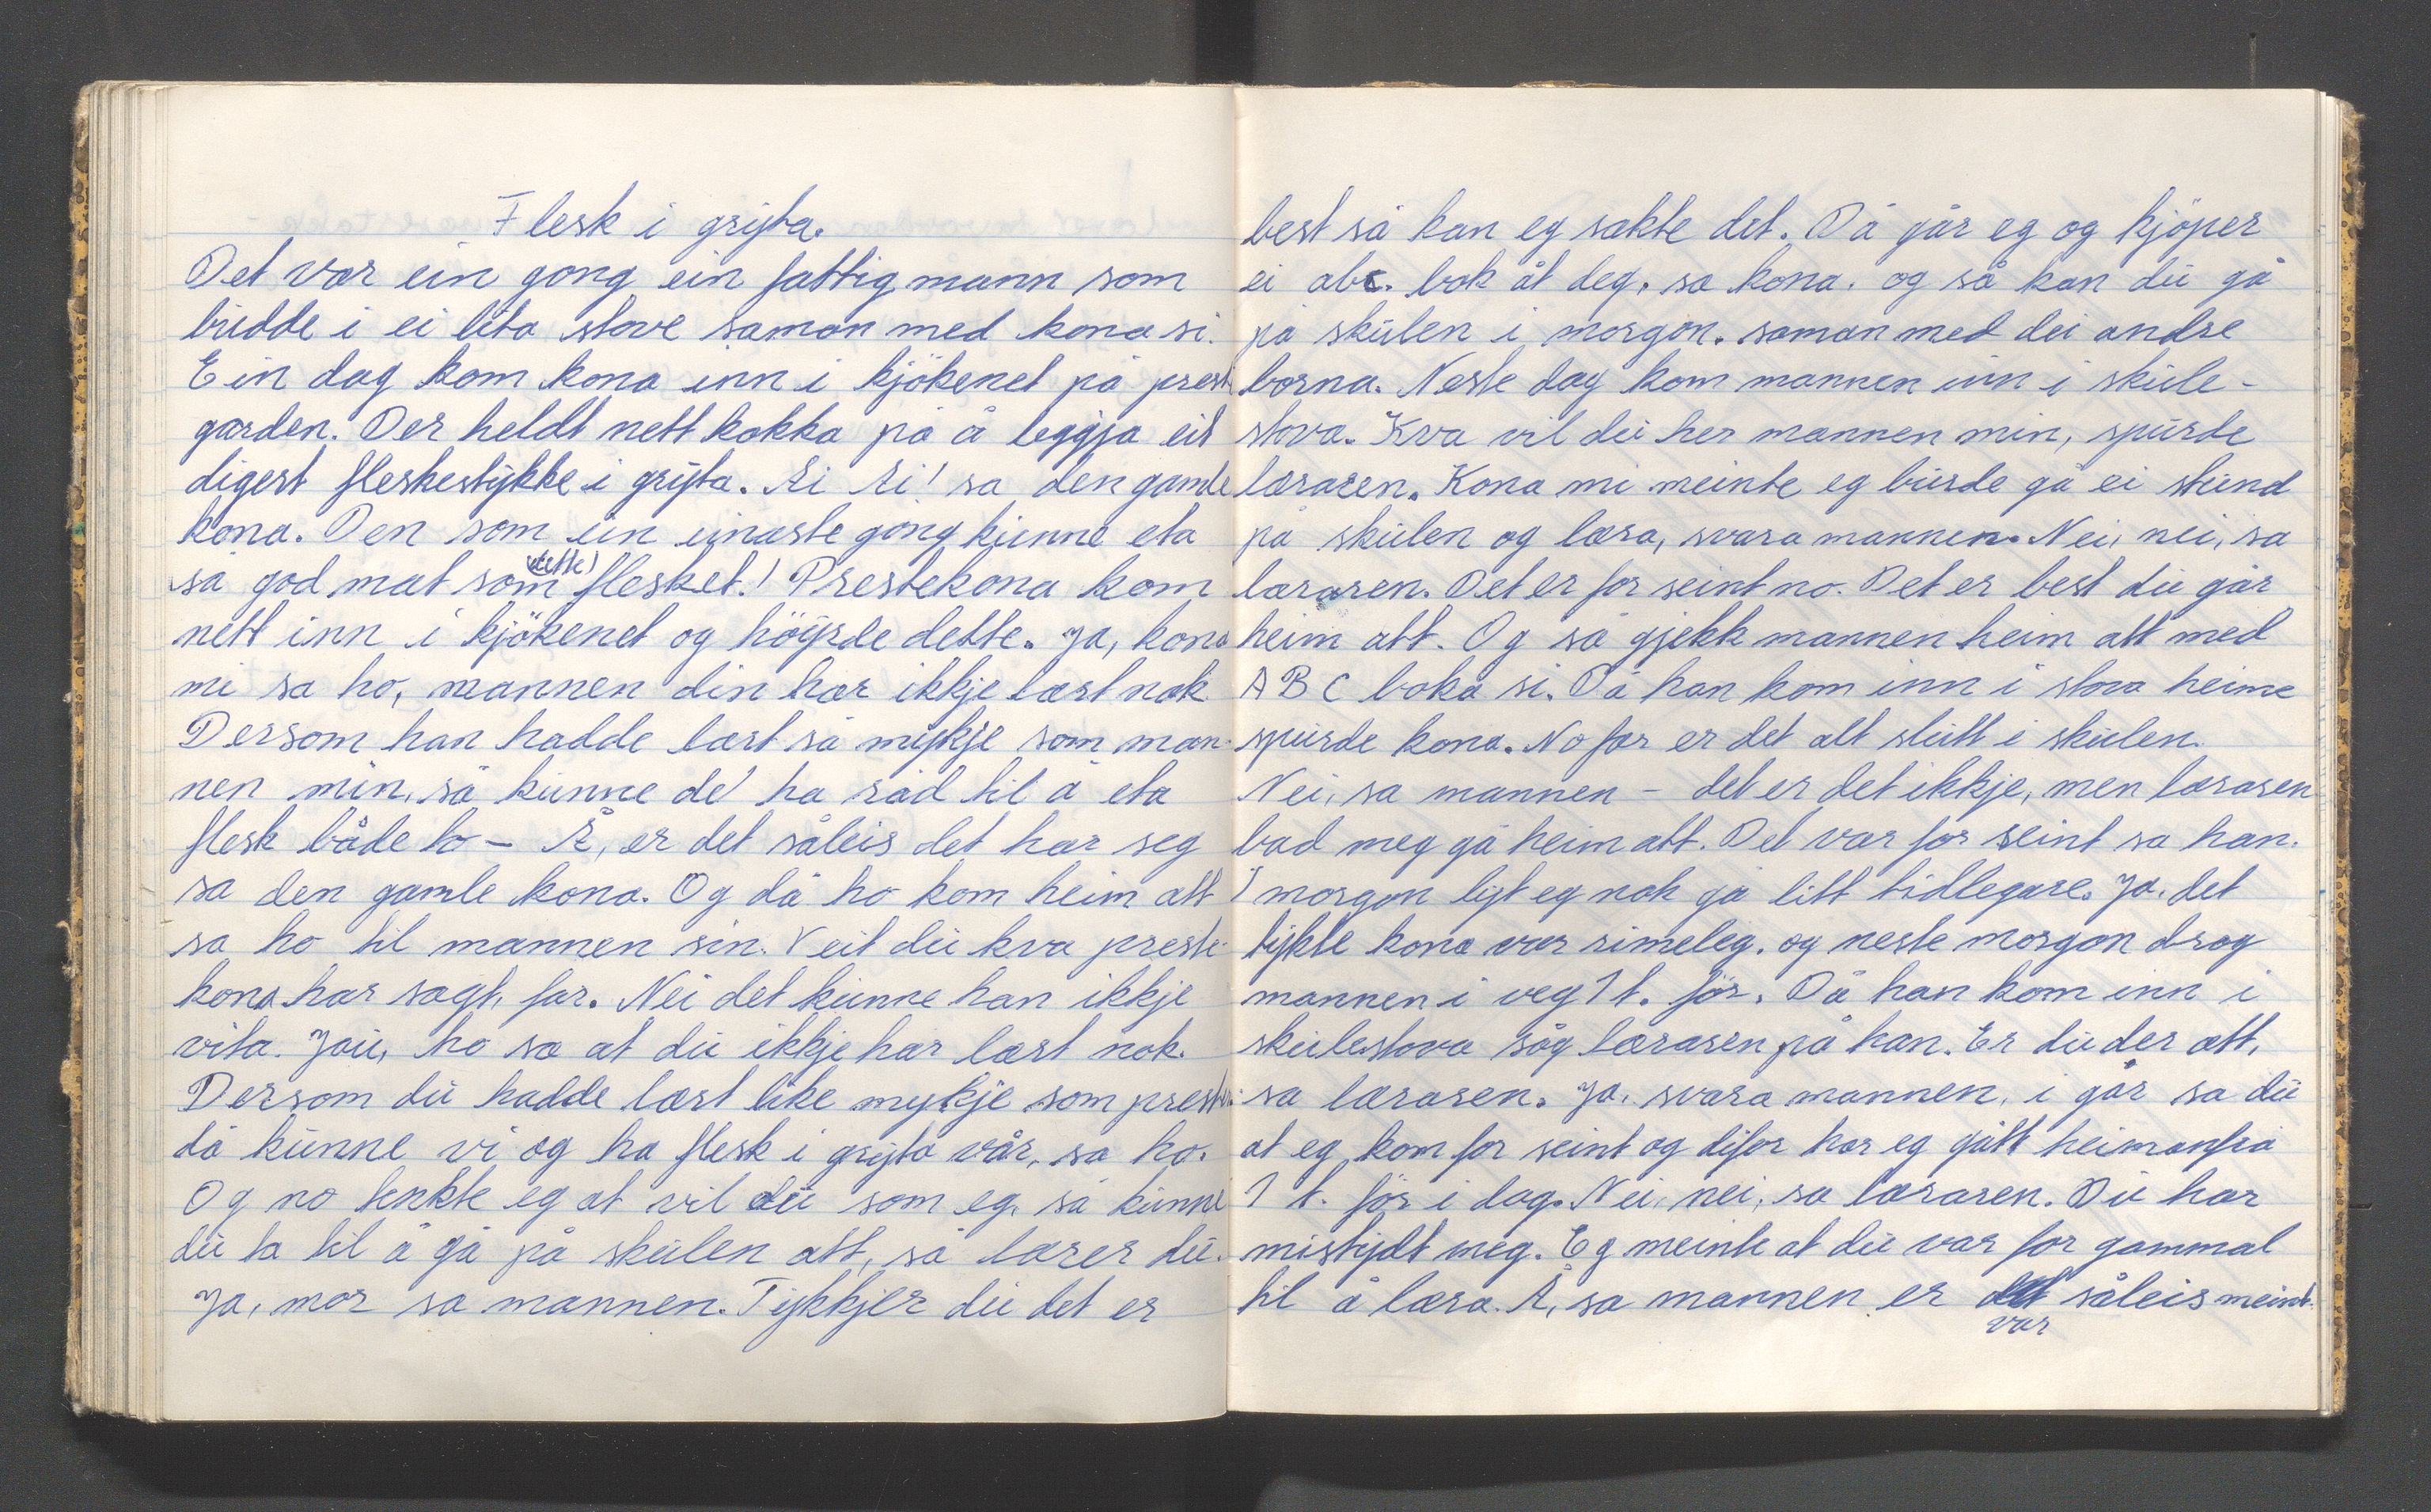 Flesk i gryta.
Det var ein gong ein fattig mann som
budde i ei lita stove saman med kona si.
Ein dag kom kona inn i kjökenet på prest
garden. Der heldt nett kokka på å leggja eit
digert fleskestykke i gryta. Ai Ai! sa den gamle
kona. Den som ein einaste gong kunne eta
så god mat som (dette) flesket! Prestekona kom
nett inn i kjökenet og höyrde dette. Ja, kona
mi sa ho, mannen din har ikkje lært nok
Dersom han hadde lært så mykje som man-
nen min, så kunne de ha råd til å eta
flesk både to - Å, er det såleis det har seg
sa den gamle kona. Og då ho kom heim att
sa ho til mannen sin. Veit du kva preste-
kona har sagt, far. Nei det kunne han ikkje
vita. Jau, ho sa at du ikkje har lært nok.
Dersom du hadde lært like mykje som presten
då kunne vi og ha flesk i gryta vår, sa ho.
Og no tenkte eg at vil du som eg, så kunne
du ta til å gå på skulen att, så lærer du.
Ja, mor sa mannen. Tykkjer du det er
best så kan eg sakte det. Då går eg og kjöper
ei abc. bok åt deg, sa kona. og så kan du gå
på skulen i morgon. saman med dei andre
borna. Neste dag kom mannen inn i skule-
stova. Kva vil du her mannen min, spurde
læraren. Kona mi meinte eg burde gå ei stund
på skulen og læra, svara mannen. Nei, nei, sa
læraren. Det er for seint no. Det er best du går
heim att. Og så gjekk mannen heim att med
ABC boka si. Då han kom inn i stova heime
spurde kona. No far er det alt slutt i skulen.
Nei, sa mannen - det er det ikkje, men læraren
bad meg gå heim att. Det var for seint sa han.
I morgon lyt eg nok gå litt tidlegare. Ja, det
tykte kona var rimeleg. og neste morgon drog
mannen i veg 1 t. för. Då han kom inn i
skulestova såg læraren på han. Er du der att,
sa læraren. Ja, svara mannen, i går sa du
at eg kom for seint og difor har eg gått heimanfrå
1 t. för i dag. Nei, nei, sa læraren. Du har
mistydt meg. Eg meinte at du var for gammal
til å læra. Å, sa mannen er det såleis meint.
var